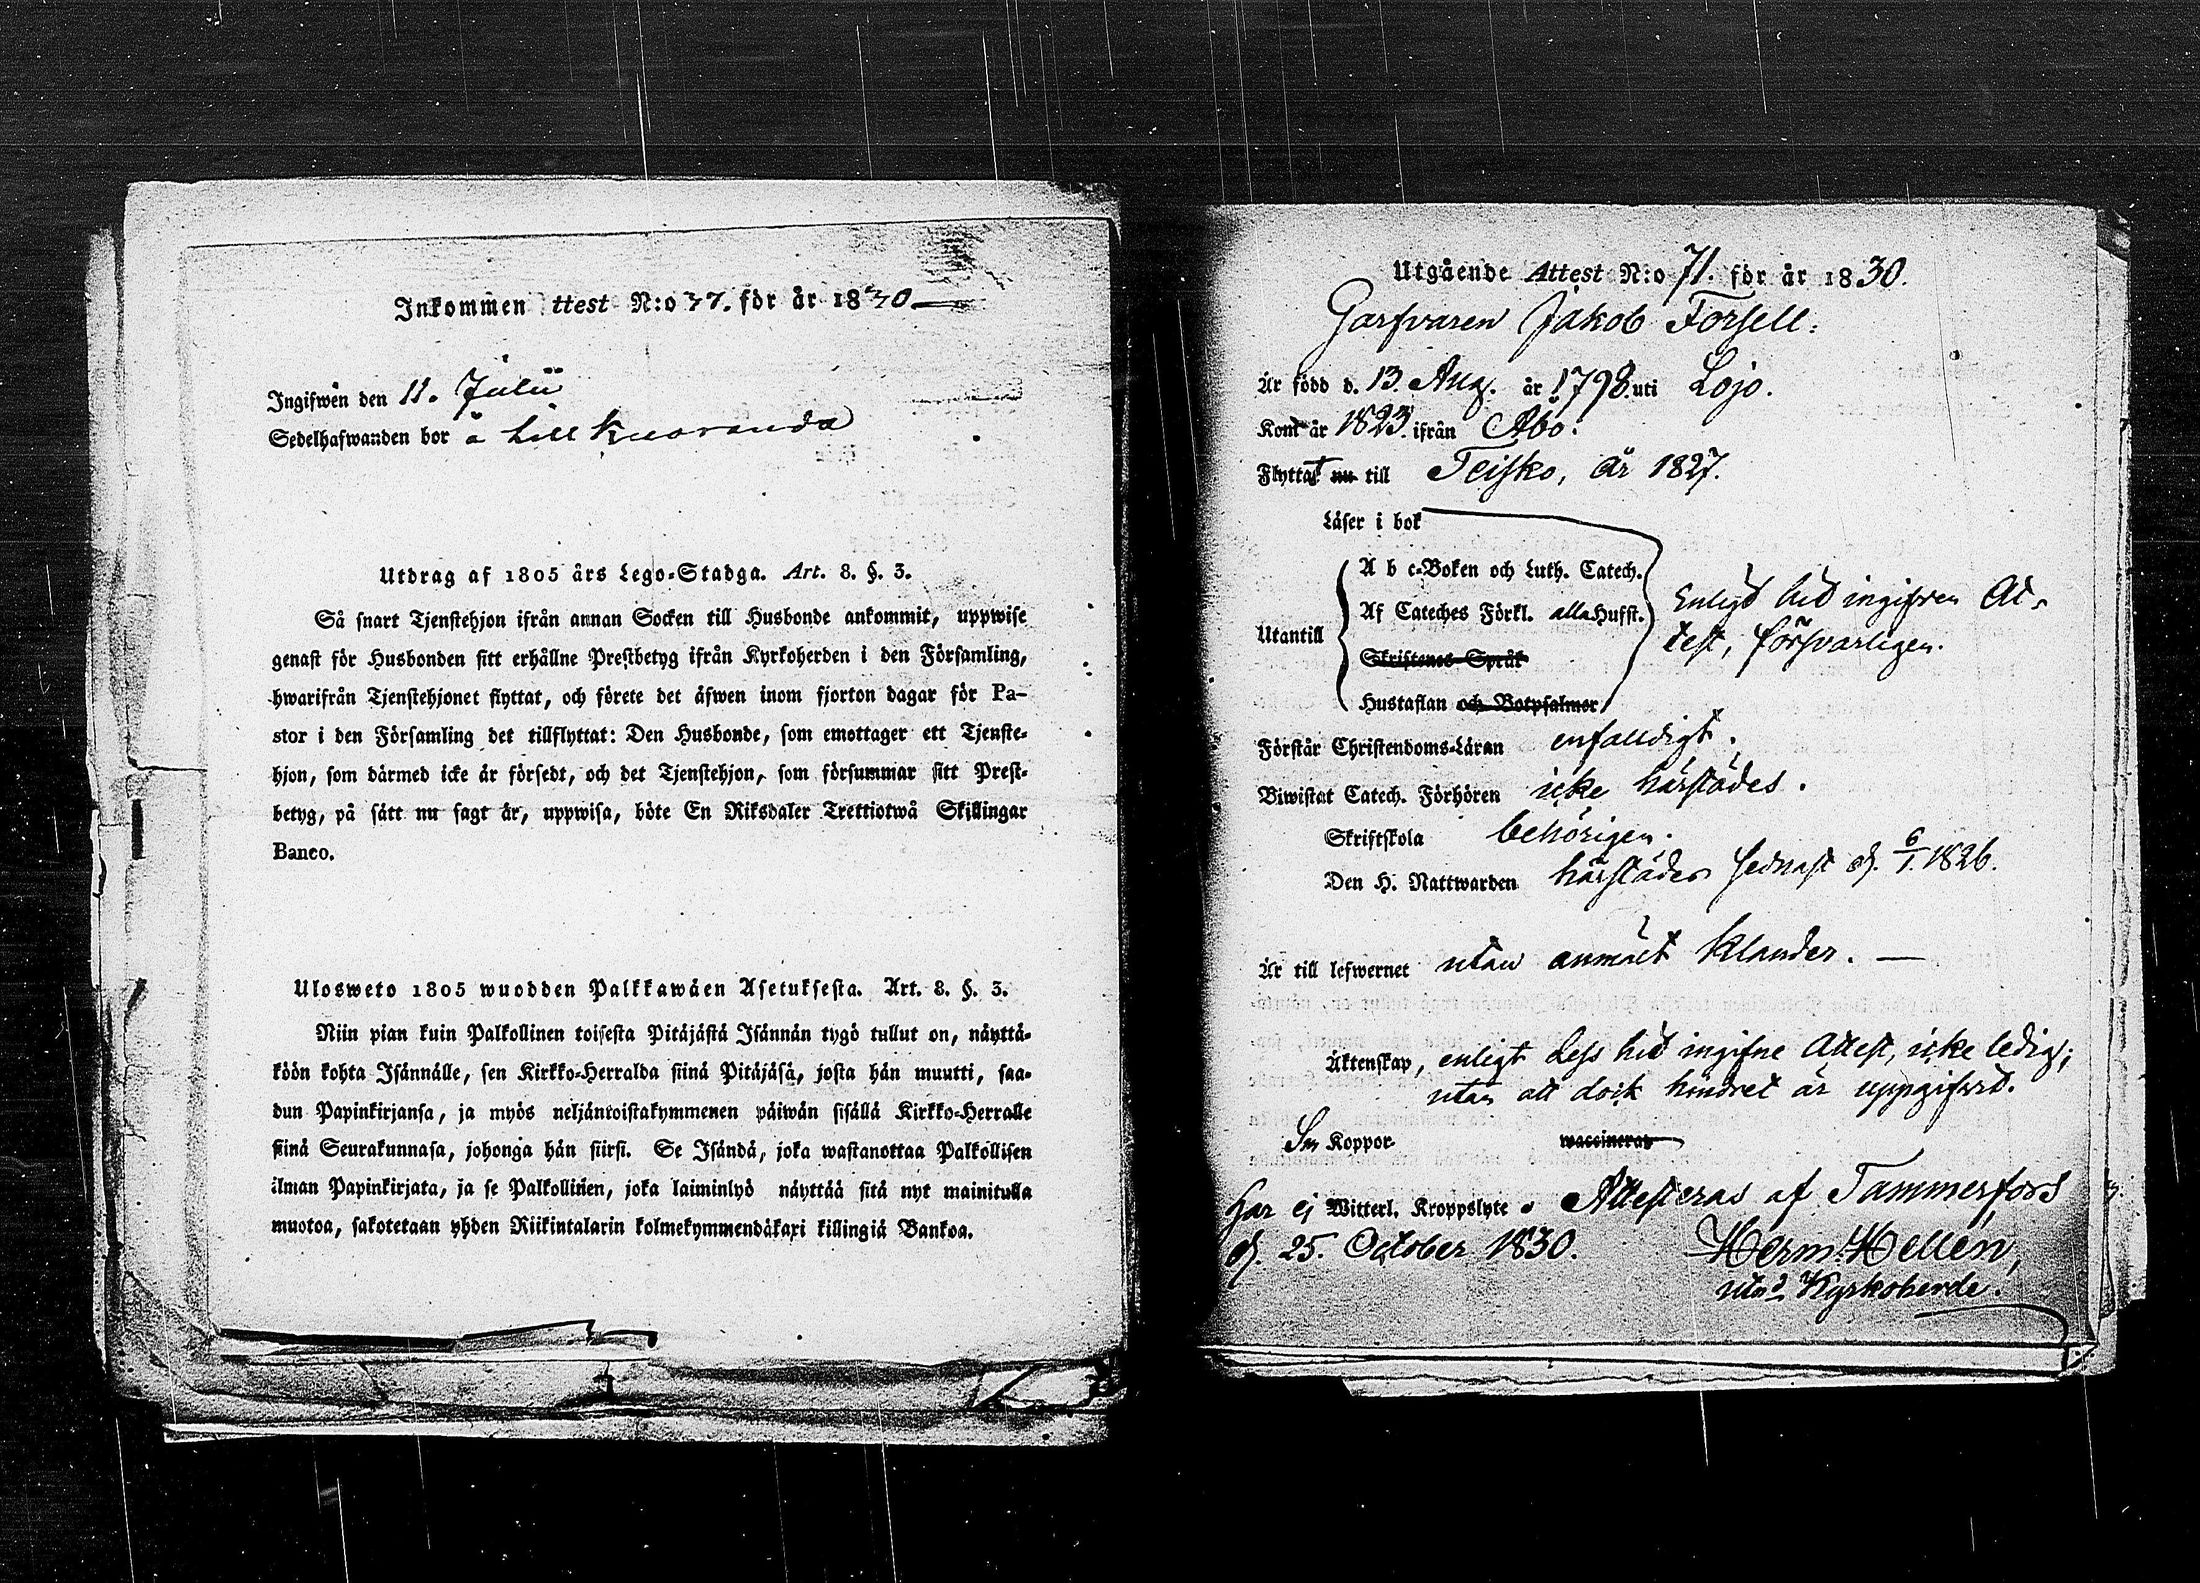 Inkommen ttest N:o 37. för år 1830.
Ingifwen den 11. Julii
Sedelhafwanden bor å Lill Kuoranda
Utdrag af 1805 års Lego-Stadga. Art. 8. §. 3.
Så snart Tjenstehjon ifrån annan Socken till Husbonde ankommit, uppwise
genast för Husbonden sitt erhållne Prestbetyg ifrån Kyrkoherden i den Församling,
hwarifrån Tjenstehjonet flyttat, och förete det äfwen inom fjorton dagar för Pa-
stor i den Församling det tillflyttat: Den Husbonde, som emottager ett Tjenste-
hjon, som därmed icke är försedt, och det Tjenstehjon, som försummar sitt Prest-
betyg, på sätt nu sagt är, uppwisa, böte En Riksdaler Trettiotwå Skillingar
Banco.
Ulosweto 1805 wuodden Palkkawäen Asetuksesta. Art. 8. §. 3.
Niin pian kuin Palkollinen toisesta Pitäjästä Isännän tygö tullut on, näyttä-
köön kohta Isännälle, sen Kirkko-Herralda siinä Pitäjäsä, josta hän muutti, saa-
dun Papinkirjansa, ja myös neljäntoistakymmenen päiwän sisällä Kirkko-Herralle
siinä Seurakunnasa, johonga hän siirsi. Se Isändä, joka wastanottaa Palkollisen
ilman Papinkirjata, ja se Palkollinen, joka laiminlyö näyttää sitä nyt mainitulla
muotoa, sakotetaan yhden Riikintalarin kolmekymmendäkaxi killingiä Bankoa.
Utgående Attest N:o 71. för år 1830.
Garfvaren Jakob Forsell:
Är född d. 13. Aug. år 1798. uti Lojo.
Kom år 1823. ifrån Åbo.
Flyttat nu till Teisko, år 1827.
Läser i bok
A b c-Boken och Luth. Catech.
Af Cateches Förkl. alla Hufst.
Utantill
Skriftenes Språk
Hustaflan och Botpsalmer
Enligt hit ingifven At-
test, försvarligen.
Förstår Christendoms-Läran enfaldigt.
Biwistat Catech. Förhören icke härstädes.
Skriftskola behörigen.
Den H. Nattwarden härstädes sednast d. 6/1. 1826.
Är till lefwernet utan anmält klander. —
Äktenskap, enligt dess hit ingifne Attest, icke ledig;
utan att dock hindret är uppgifvit.
Sm Koppor waccinerad
har ej Witterl. Kroppslyte. Attesteras af Tammerfors
d. 25. October 1830. Herm. Hellén,
Kyrkoherde.